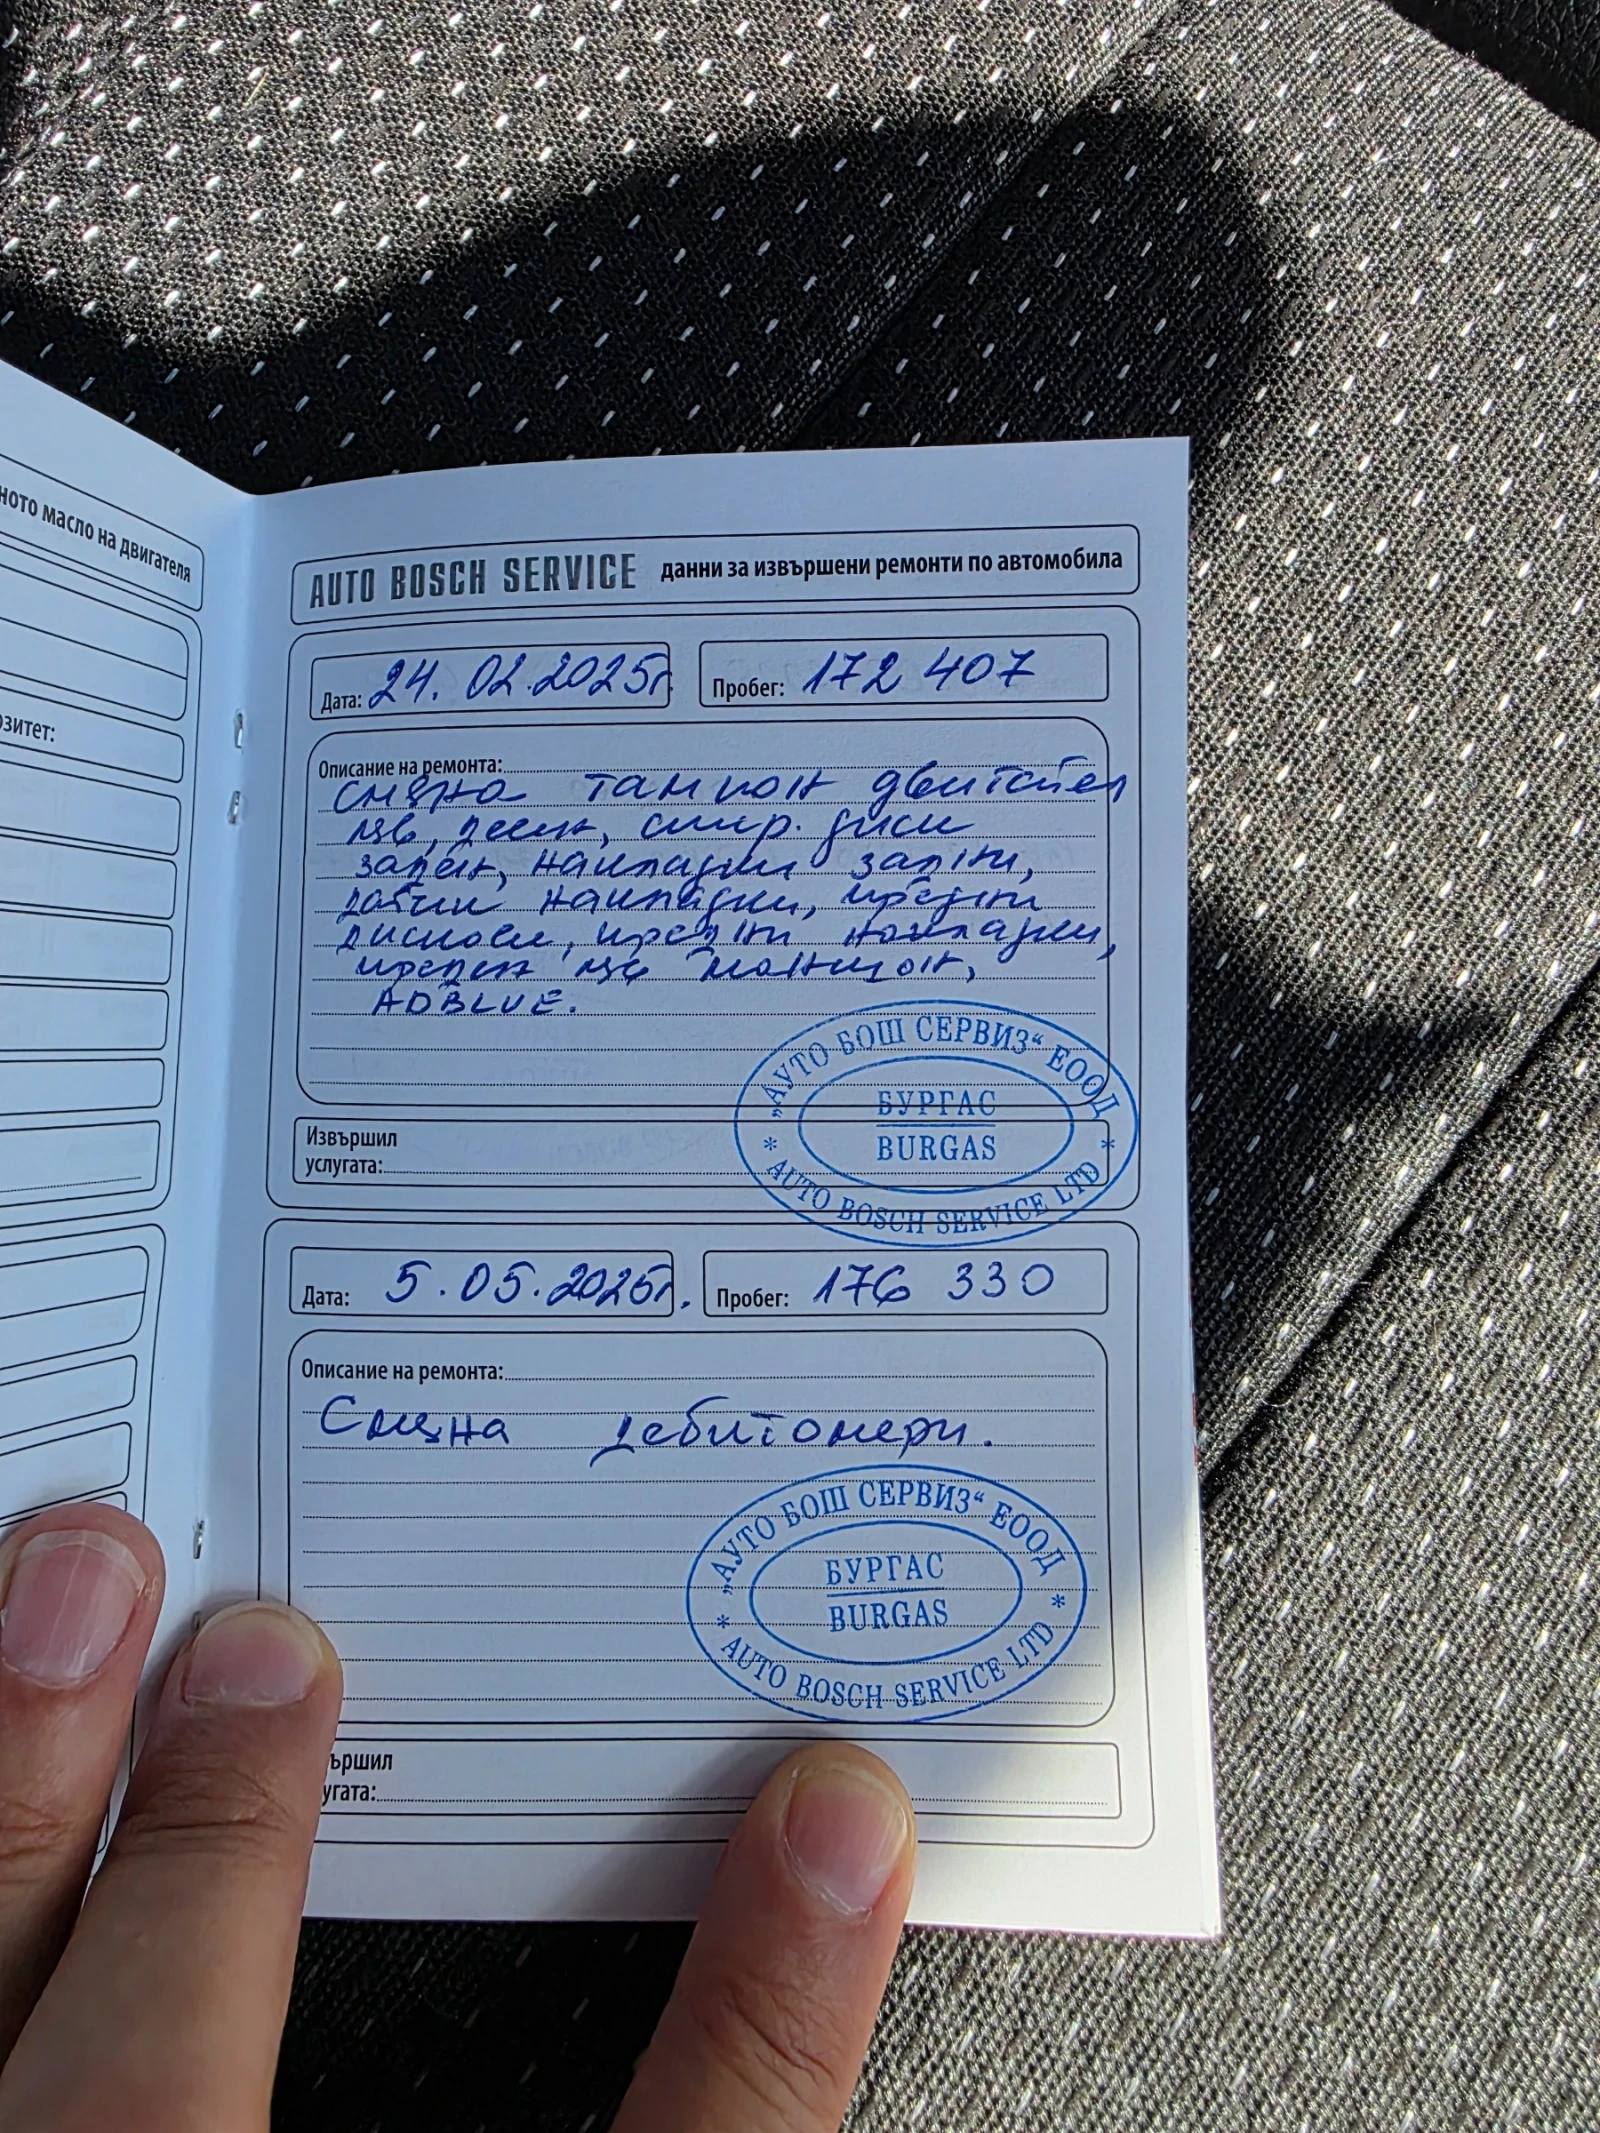 ното масло на двигателя
озитет:
AUTO BOSCH SERVICE данни за извършени ремонти по автомобила
Дата: 24.02.2025г. Пробег: 172 407
Описание на ремонта:
смяна тампон двигател
ляв, десен, спир. диск
заден, накладки задни,
ръчни накладки, предни
дискове, предни накладки,
преден ляв маншон,
ADBLUE.
Извършил
услугата:
„АУТО БОШ СЕРВИЗ“ ЕООД
БУРГАС
BURGAS
* AUTO BOSCH SERVICE LTD *
Дата: 5.05.2025г. Пробег: 176 330
Описание на ремонта:
Смяна дебитомери.
„АУТО БОШ СЕРВИЗ“ ЕООД
БУРГАС
BURGAS
* AUTO BOSCH SERVICE LTD *
ършил
угата: